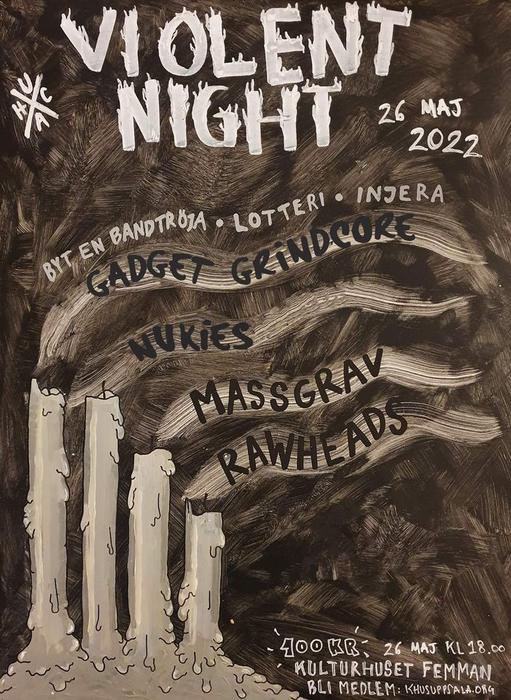 VIOLENT
NIGHT
26 MAJ
2022
BYT EN BANDTRÖJA • LOTTERI • INJERA
GADGET GRINDCORE
NUKIES
MASSGRAV
RAWHEADS
100 KR
26 MAJ KL 18.00
KULTURHUSET FEMMAN
BLI MEDLEM: KHUSUPPSALA.ORG